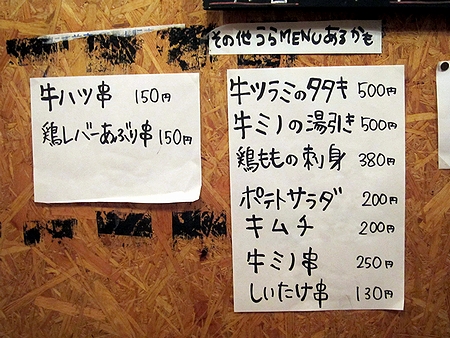 その他うらMENUあるかも
牛ハツ串 150円
鶏レバーあぶり串 150円
牛ツラミのタタキ 500円
牛ミノの湯引き 500円
鶏ももの刺身 380円
ポテトサラダ 200円
キムチ 200円
牛ミノ串 250円
しいたけ串 130円